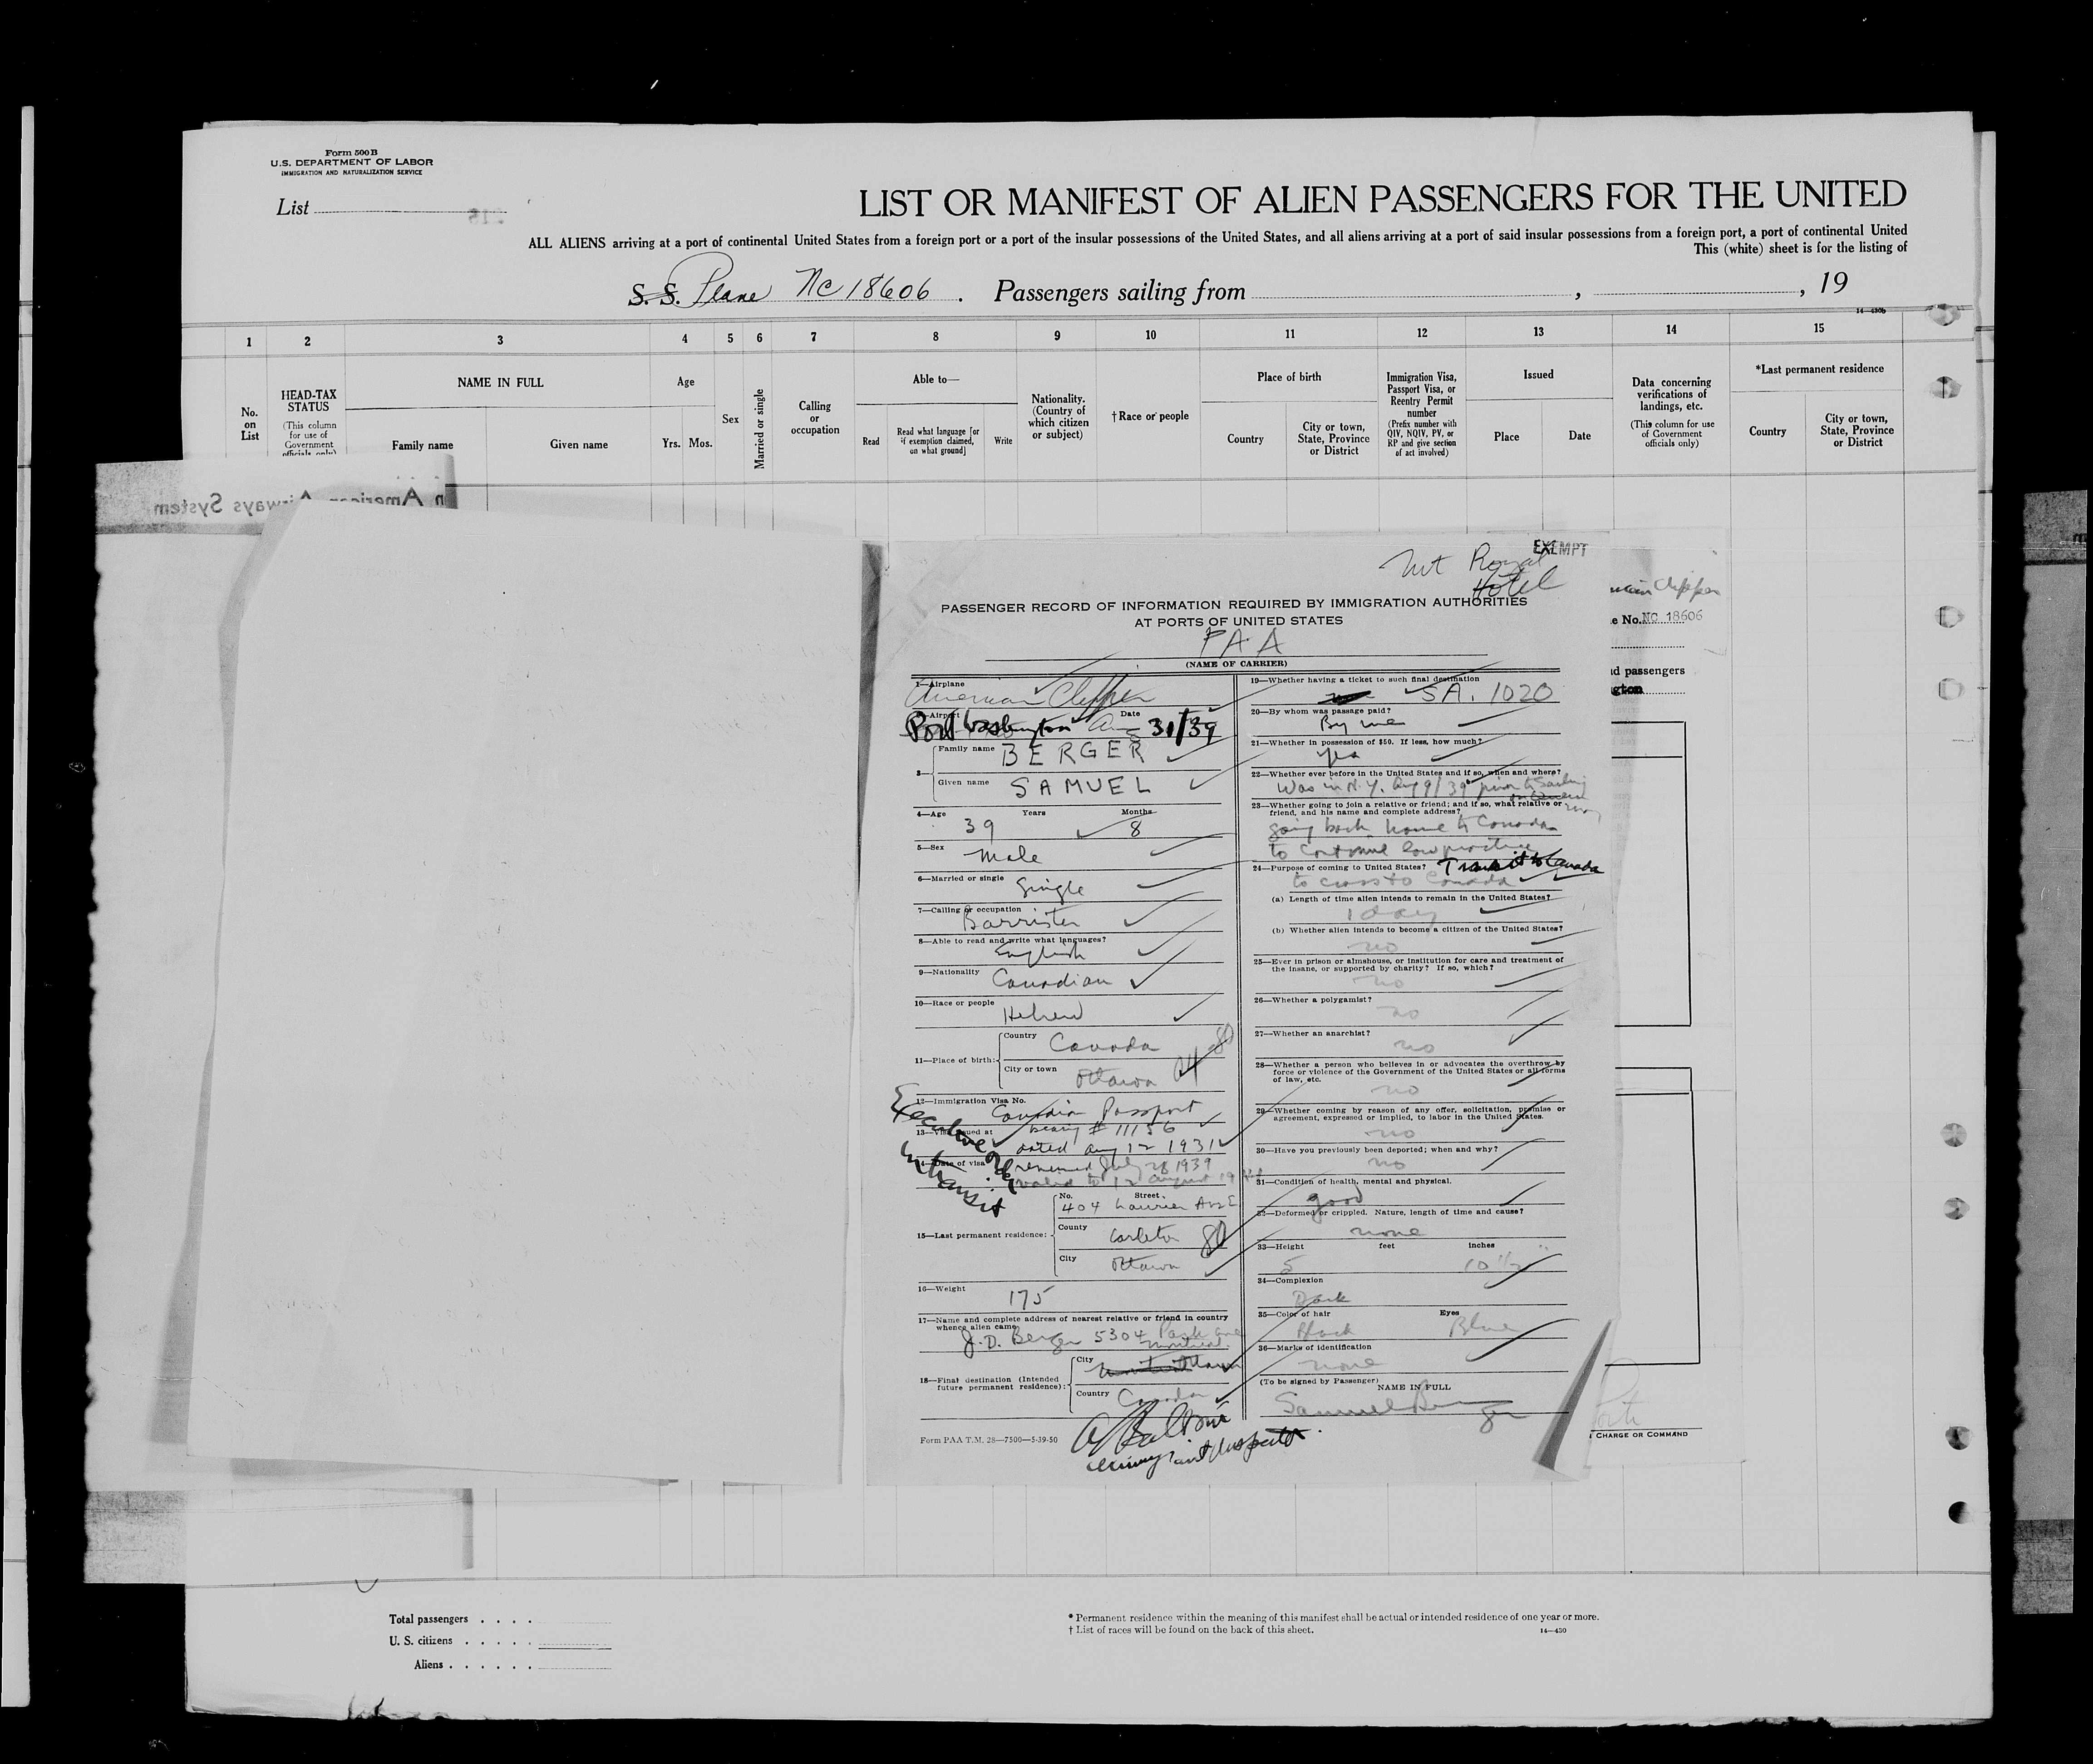 Form 500 B
U.S. DEPARTMENT OF LABOR
IMMIGRATION AND NATURALIZATION SERVICE
List
LIST OR MANIFEST OF ALIEN PASSENGERS FOR THE UNITED
ALL ALIENS arriving at a port of continental United States from a foreign port or a port of the insular possessions of the United States, and all aliens arriving at a port of said insular possessions from a foreign port, a port of continental United
This (white) sheet is for the listing of
S. S. Plane NC 18606 . Passengers sailing from , , 19
14—430b
1 2 3 4 5 6 7 8 9 10 11 12 13 14 15
No. on List
HEAD-TAX STATUS
(This column for use of Government officials only)
NAME IN FULL
Family name
Given name
Age
Yrs. Mos.
Sex
Married or single
Calling or occupation
Able to—
Read
Read what language [or if exemption claimed, on what ground]
Write
Nationality. (Country of which citizen or subject)
†Race or people
Place of birth
Country
City or town, State, Province or District
Immigration Visa, Passport Visa, or Reentry Permit number
(Prefix number with QIV, NQIV, PV, or RP and give section of act involved)
Issued
Place
Date
Data concerning verifications of landings, etc.
(This column for use of Government officials only)
*Last permanent residence
Country
City or town, State, Province or District
n American Airways System
EXEMPT
Mt Royal
Hotel
PASSENGER RECORD OF INFORMATION REQUIRED BY IMMIGRATION AUTHORITIES
AT PORTS OF UNITED STATES
PAA
(NAME OF CARRIER)
1—Airplane
American Clipper
2—Airport Date
Port Washington Aug 31/39
3— Family name BERGER
Given name SAMUEL
4—Age Years Months
39 8
5—Sex
Male
6—Married or single
Single
7—Calling or occupation
Barrister
8—Able to read and write what languages?
English
9—Nationality
Canadian
10—Race or people
Hebrew
11—Place of birth: Country
Canada
City or town
Ottawa
12—Immigration Visa No.
Canadian Passport
13—Visa issued at
bearing # 11156
dated Aug 12 1931
14—Date of visa
renewed July 28 1939
valid to 12 August 19
Executive order
in transit
15—Last permanent residence: No. Street
404 Laurier Ave E
County
Carleton
City
Ottawa
16—Weight
175
17—Name and complete address of nearest relative or friend in country whence alien came
J. D. Berger 5304 Park ave
Montreal
18—Final destination (Intended future permanent residence): City
Country
Canada
Form PAA T.M. 28—7500—5-39-50
Immigrant Inspector
19—Whether having a ticket to such final destination
SA. 1020
20—By whom was passage paid?
By me
21—Whether in possession of $50. If less, how much?
yes
22—Whether ever before in the United States and if so, when and where?
Was in N.Y. Aug 9/39 prior to sailing
23—Whether going to join a relative or friend; and if so, what relative or friend, and his name and complete address?
going back home to Canada
to continue law practice
24—Purpose of coming to United States? Transit to Canada
to cross to Canada
(a) Length of time alien intends to remain in the United States?
1 day
(b) Whether alien intends to become a citizen of the United States?
no
25—Ever in prison or almshouse, or institution for care and treatment of the insane, or supported by charity? If so, which?
no
26—Whether a polygamist?
no
27—Whether an anarchist?
no
28—Whether a person who believes in or advocates the overthrow by force or violence of the Government of the United States or all forms of law, etc.
no
29—Whether coming by reason of any offer, solicitation, promise or agreement, expressed or implied, to labor in the United States.
no
30—Have you previously been deported; when and why?
no
31—Condition of health, mental and physical.
good
32—Deformed or crippled. Nature, length of time and cause?
none
33—Height feet inches
5 10 1/2
34—Complexion
Dark
35—Color of hair Eyes
Black Blue
36—Marks of identification
none
(To be signed by Passenger)
NAME IN FULL
Samuel Berger
Clipper
e No. NC 18606
d passengers
gton
CHARGE OR COMMAND
Total passengers . . . .
U. S. citizens . . . . .
Aliens . . . . . .
* Permanent residence within the meaning of this manifest shall be actual or intended residence of one year or more.
† List of races will be found on the back of this sheet.
14—430